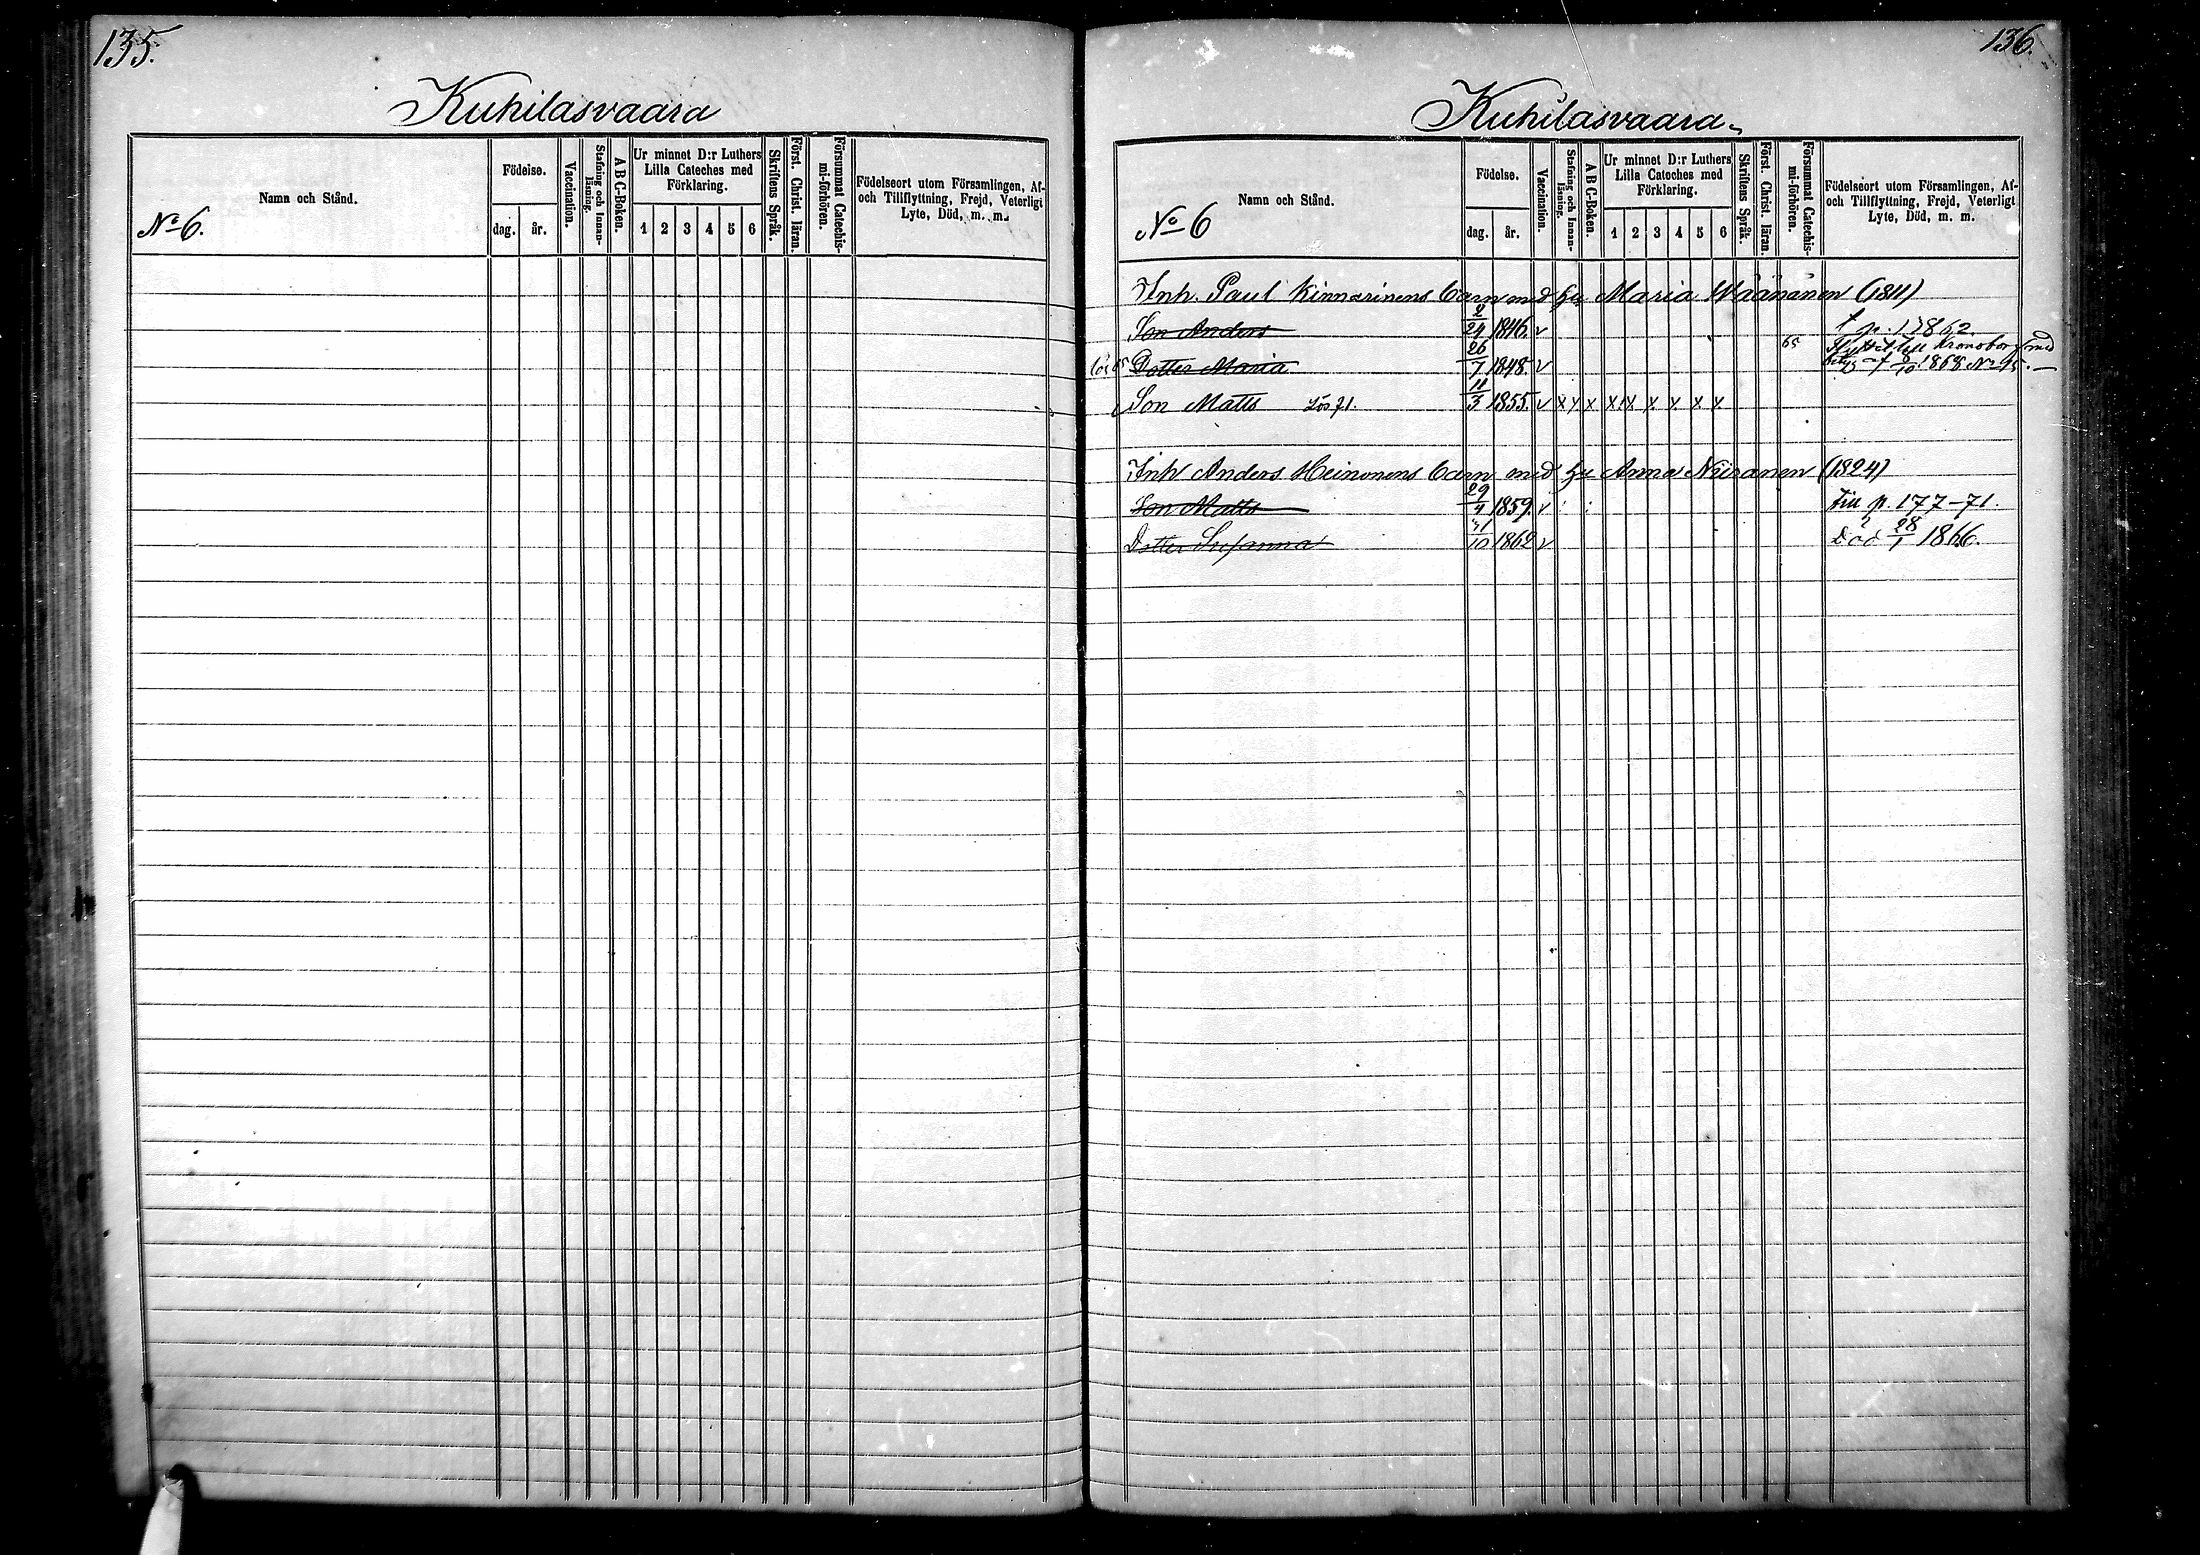 135.
Kuhilasvaara
Namn och Stånd.
No 6.
Födelse.
dag. år.
Vaccination.
Stafning och Innan-
läsning.
A B C-Boken.
Ur minnet D:r Luthers
Lilla Cateches med
Förklaring.
1 2 3 4 5 6
Skriftens Språk.
Först. Christ. läran.
Försummat Catechis-
mi-förhören.
Födelseort utom Församlingen, Af-
och Tillflyttning, Frejd, Veterligt
Lyte, Död, m. m.
136.
Kuhilasvaara
Namn och Stånd.
No 6
Födelse.
dag. år.
Vaccination.
Stafning och Innan-
läsning.
A B C-Boken.
Ur minnet D:r Luthers
Lilla Cateches med
Förklaring.
1 2 3 4 5 6
Skriftens Språk.
Först. Christ. läran.
Försummat Catechis-
mi-förhören.
Födelseort utom Församlingen, Af-
och Tillflyttning, Frejd, Veterligt
Lyte, Död, m. m.
Inh. Paul Kinnarinens barn med hu Maria Wäänänen (1811)
Son Anders 2/24 1846. v
Dotter Maria 26/7 1848. v 65 Flytt till Kronoborg med
1868 No 95.
Son Matts Lös 71. 11/3 1855. v x y x x x x x x x
Inh Anders Heinonens barn med hu Anna Niiranen (1824)
Son Matts 29/4 1859. v till p. 177-71.
Dotter Susanna 31/10 1862 v Död 28/1 1866.